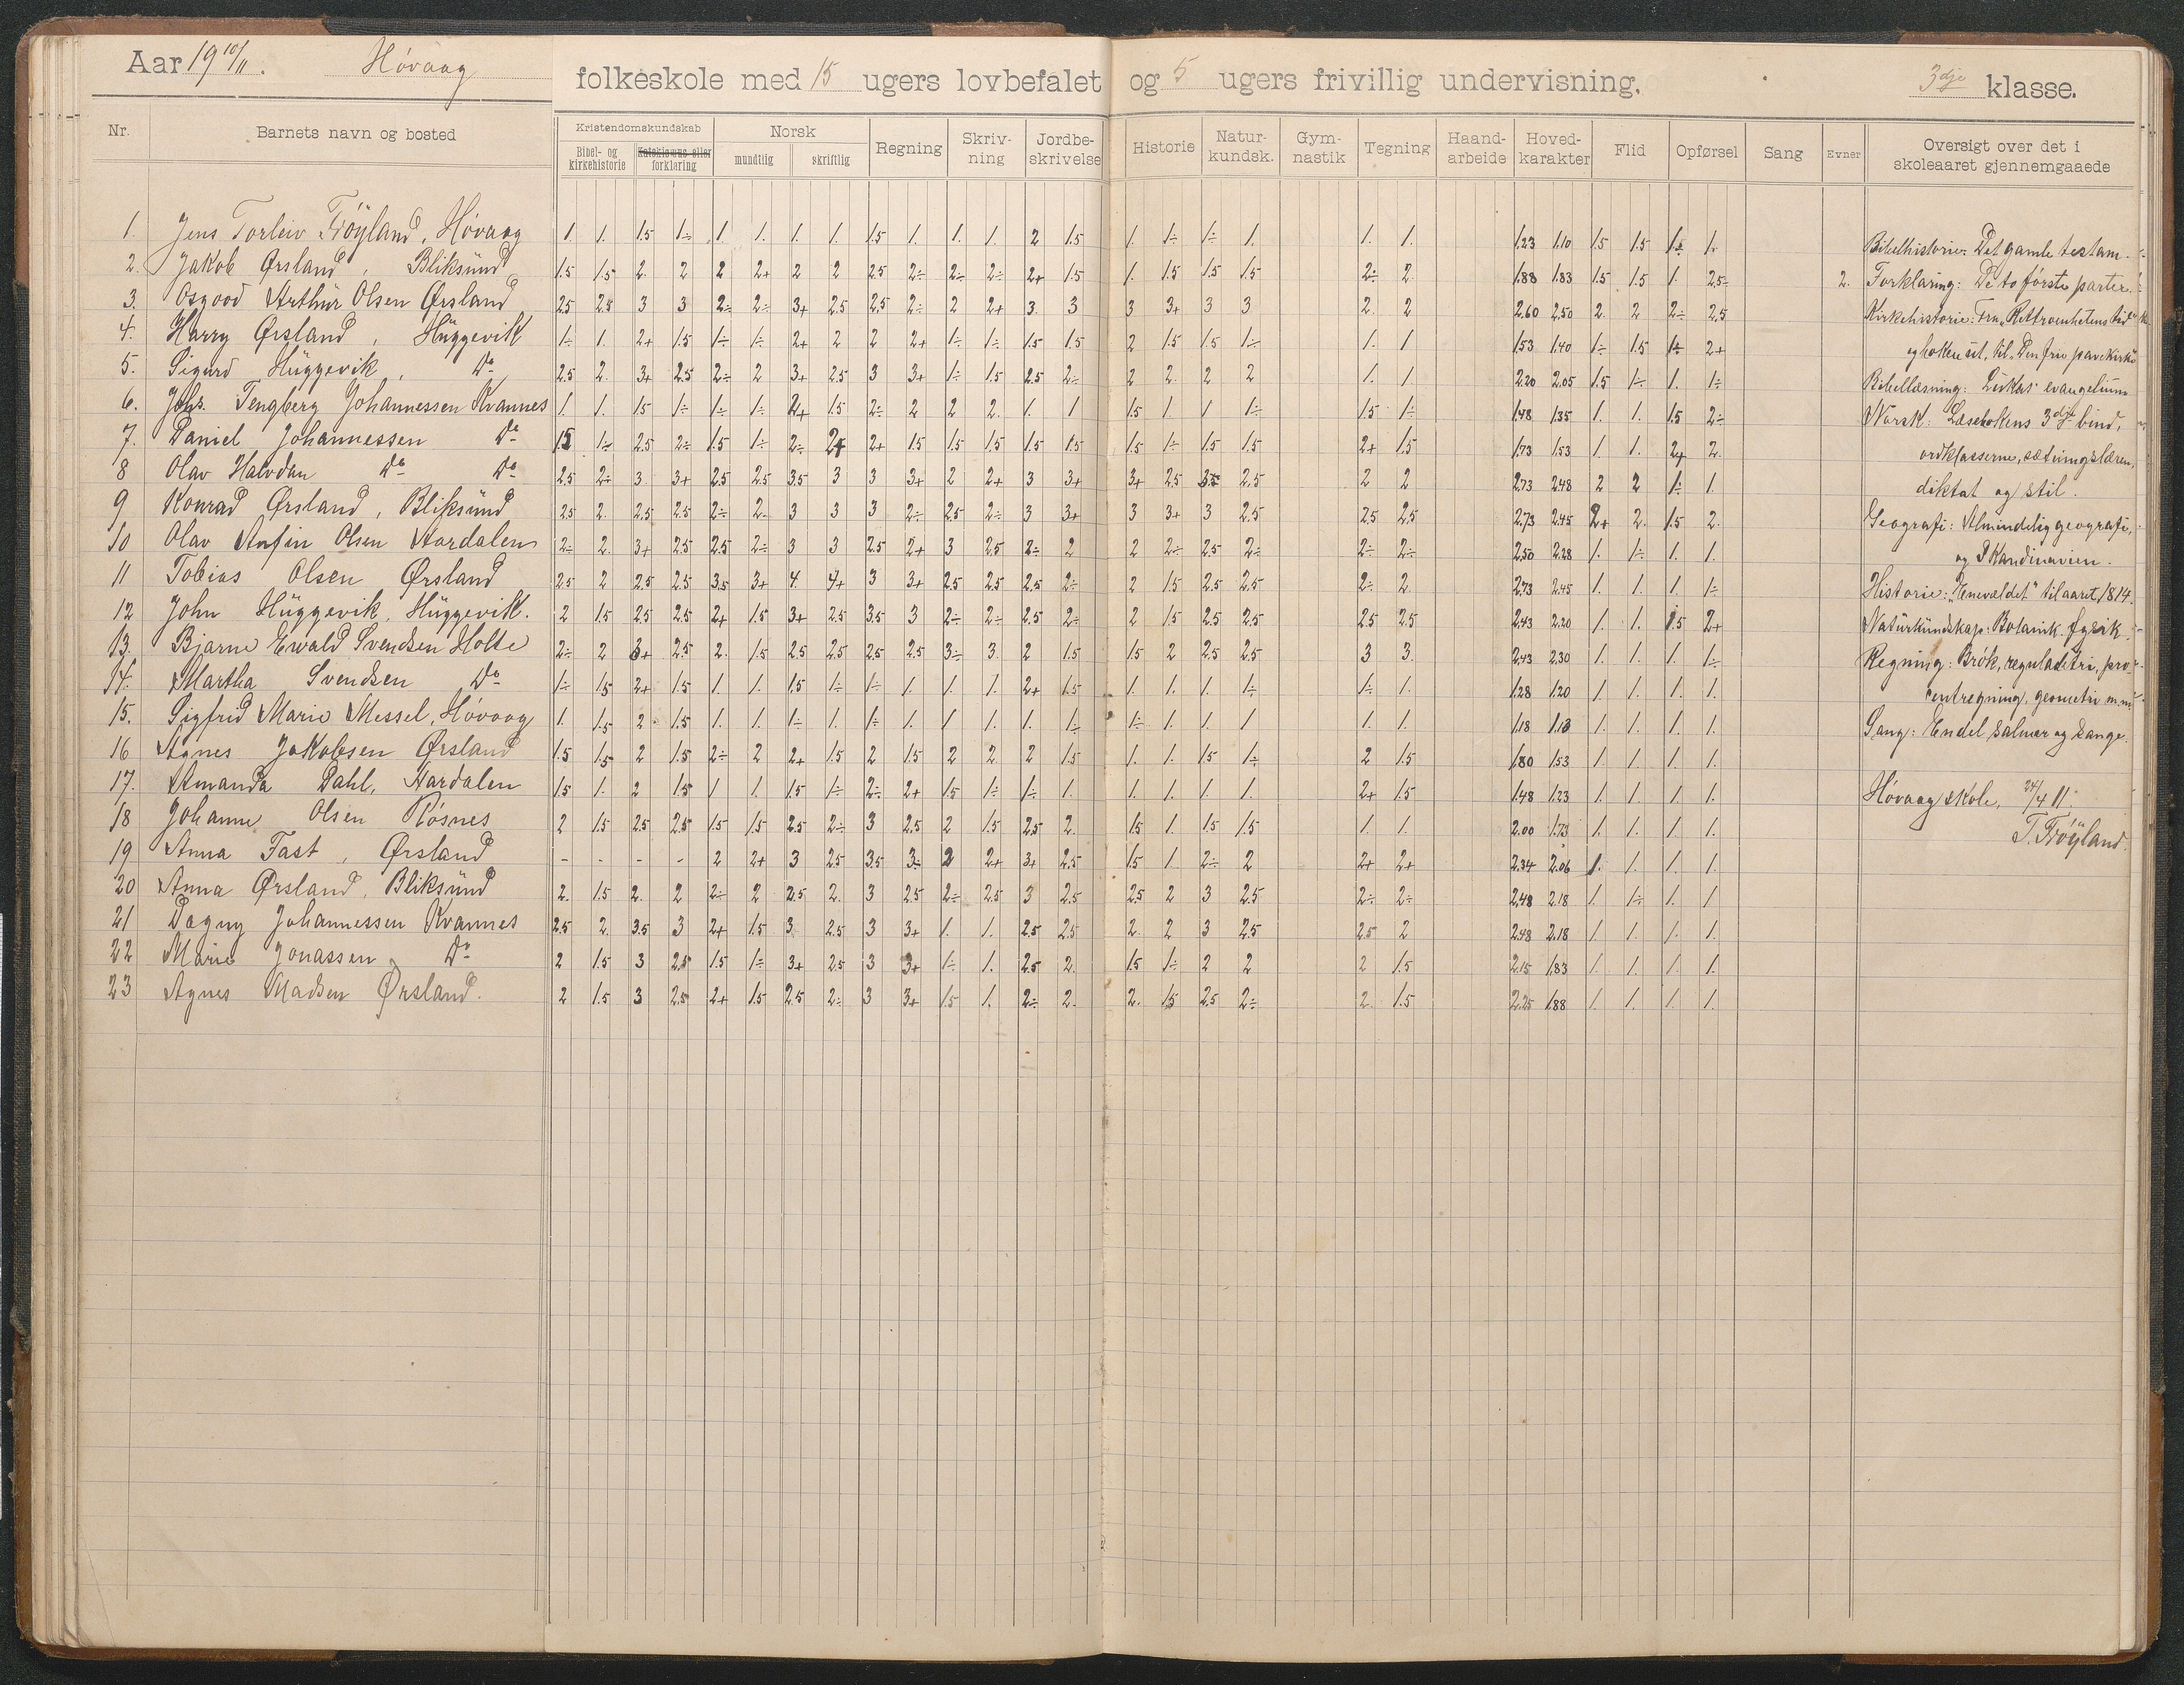 Aar 19 10/11. Høvaag folkeskole med 15 ugers lovbefalet og 5 ugers frivillig undervisning. 3dje klasse.
Nr. Barnets navn og bosted Kristendomskundskab Norsk Regning Skriv-ning Jordbe-skrivelse Historie Natur-kundsk. Gym-nastik Tegning Haand-arbeide Hoved-karakter Flid Opførsel Sang Evner Oversigt over det i skoleaaret gjennemgaaede
Bibel- og kirkehistorie Katekismus eller forklaring mundtlig skriftlig
1. Jens Torleiv Frøyland, Høvaag 1. 1. 1.5 1÷ 1. 1. 1. 1. 1.5 1. 1. 1. 2 1.5 1. 1÷ 1÷ 1. 1. 1. 1.23 1.10 1.5 1.5 1÷ 1.
2. Jakob Ørsland, Bliksund 1.5 1.5 2. 2 2 2+ 2 2 2.5 2÷ 2÷ 2÷ 2+ 1.5 1. 1.5 1.5 1.5 2÷ 2 1.88 1.83 1.5 1.5 1. 2.5÷ 2.
3. Osgood Arthur Olsen Ørsland 2.5 2.5 3 3 2÷ 2÷ 3+ 2.5 2.5 2÷ 2 2+ 3. 3 3 3+ 3 3 2. 2 2.60 2.50 2. 2 2÷ 2.5
4. Harry Ørsland, Huggevik 1÷ 1. 2+ 1.5 1÷ 1÷ 2+ 2 2 2+ 1÷ 1÷ 1.5 1.5 2 1.5 1.5 1÷ 1. 1 1.53 1.40 1÷ 1.5 1÷ 2+
5. Sigurd Huggevik, Do 2.5 2. 3+ 2.5 2÷ 2 3+ 2.5 3 3+ 1÷ 1.5 2.5 2÷ 2 2 2 2 1. 1. 2.20 2.05 1.5 1÷ 1. 1÷
6. Johs. Tengberg Johannessen Kvannes 1. 1. 1.5 1÷ 1÷ 1÷ 2+ 1.5 2÷ 2 2 2. 1. 1 1.5 1 1 1÷ 1.5 1÷ 1.48 1.35 1. 1. 1.5 2÷
7. Daniel Johannessen Do 1.5 1÷ 2.5 2÷ 1.5 1÷ 2÷ 2+ 2+ 1.5 1.5 1.5 1.5 1.5 1.5 1÷ 1.5 1.5 2+ 1.5 1.73 1.53 1. 1. 2+ 2.
8 Olav Halvdan Do Do 2.5 2÷ 3. 3+ 2.5 2.5 3.5 3 3 3+ 2 2+ 3 3+ 3+ 2.5 3.5 2.5 2 2 2.73 2.48 2 2 1÷ 1.
9 Konrad Ørsland, Bliksund 2.5 2. 2.5 2.5 2÷ 2. 3 3 3 2÷ 2.5 2÷ 3 3+ 3 3+ 3 2.5 2.5 2.5 2.73 2.45 2+ 2. 1.5 2.
10 Olav Anfin Olsen Aardalen 2÷ 2. 3+ 2.5 2.5 2÷ 3 3 2.5 2+ 3 2.5 2÷ 2 2 2÷ 2.5 2÷ 2÷ 2÷ 2.50 2.28 1. 1÷ 1. 1.
11 Tobias Olsen Ørsland 2.5 2 2.5 2.5 3.5 3+ 4. 4+ 3 3+ 2.5 2.5 2.5 2÷ 2 1.5 2.5 2.5 2÷ 2 2.73 2.45 1. 1. 1. 1÷
12 John Huggevik, Huggevik. 2 1.5 2.5 2.5 2+ 1.5 3+ 2.5 3.5 3 2÷ 2÷ 2.5 2÷ 2 1.5 2.5 2.5 2.5 2.5 2.43 2.20 1. 1. 1.5 2+
13. Bjarne Ewald Svendsen Holte 2÷ 2 3+ 2.5 2. 1.5 2.5 2.5 2.5 2.5 3÷ 3. 2 1.5 1.5 2 2.5 2.5 3 3. 2.43 2.30 1. 1. 1. 1÷
14. Martha Svendsen Do 1÷ 1.5 2+ 1.5 1. 1. 1.5 1÷ 1÷ 1. 1. 1. 2+ 1.5 1. 1. 1. 1÷ 1÷ 1. 1.28 1.20 1. 1. 1. 1.
15. Sigfrid Marie Messel, Høvaag 1. 1.5 2 1.5 1. 1. 1÷ 1. 1÷ 1. 1. 1. 1. 1÷ 1÷ 1. 1. 1 1. 1. 1.18 1.13 1. 1. 1. 1.
16 Agnes Jakobsen Ørsland 1.5 1.5 2 1.5 2÷ 2 2+ 1.5 2 1.5 2 2 2 1.5 1. 1. 1.5 1÷ 2 1.5 1.80 1.53 1. 1. 1. 1.
17. Amanda Dahl, Aardalen 1.5 1. 2 1.5 1 1. 1.5 1÷ 2÷ 2+ 1.5 1÷ 1÷ 1. 1. 1. 1. 1. 2+ 1.5 1.48 1.23 1. 1. 1. 1.
18 Johanne Olsen Røsnes 2 1.5 2.5 2.5 1.5 1.5 2.5 2÷ 3 2.5 2 1.5 2.5 2. 1.5 1. 1.5 1.5 1. 1. 2.00 1.73 1. 1. 1. 1.
19 Anna Fast, Ørsland - - - - 2 2+ 3 2.5 3.5 3÷ 2 2+ 3+ 2.5 1.5 1 2÷ 2 2+ 2+ 2.34 2.06 1. 1. 1. 1.
20 Anna Ørsland, Bliksund 2. 1.5 2. 2 2÷ 2 2.5 2. 3 2.5 2÷ 2.5 3 2.5 2.5 2 3 2.5 2÷ 2÷ 2.48 2.18 1. 1÷ 1. 1
21 Dagny Johannessen Kvannes 2.5 2. 3.5 3 2+ 1.5 3. 2.5 3 3+ 1. 1. 2.5 2.5 2. 2 3 2.5 2.5 2 2.48 2.18 1. 1. 1. 1.
22 Marie Jonassen Do 2 1.5 3 2.5 1.5 1÷ 3+ 2.5 3 3+ 1÷ 1. 2.5 2. 1.5 1÷ 2 2 2 1.5 2.15 1.83 1. 1. 1. 1.
23 Agnes Madsen Ørsland. 2 1.5 3 2.5 2+ 1.5 2.5 2÷ 3 3+ 1.5 1. 2÷ 2. 2. 1.5 2.5 2÷ 2. 1.5 2.25 1.88 1. 1. 1. 1.
Bibelhistorie: Det gamle testam.
Forklaring: De to første parter.
Kirkehistorie: Fra "Rettroenhetens tid"
til "Den frie pavekirke
Bibellæsning: Lukas evangelium
Norsk: Læsebokens 3dje bind,
ordklasserne, sætningslæren,
diktat og stil.
Geografi: Almindelig geografi,
og Skandinavien.
Historie: "Enevældet" til aaret 1814.
Naturkundskap: Botanik. fysik
Regning: Brøk, reguladetri, pro-
centregning, geometri m.m.
Sang: Endel salmer og sange.
Høvaag skole, 24/4 11.
T. Frøyland.